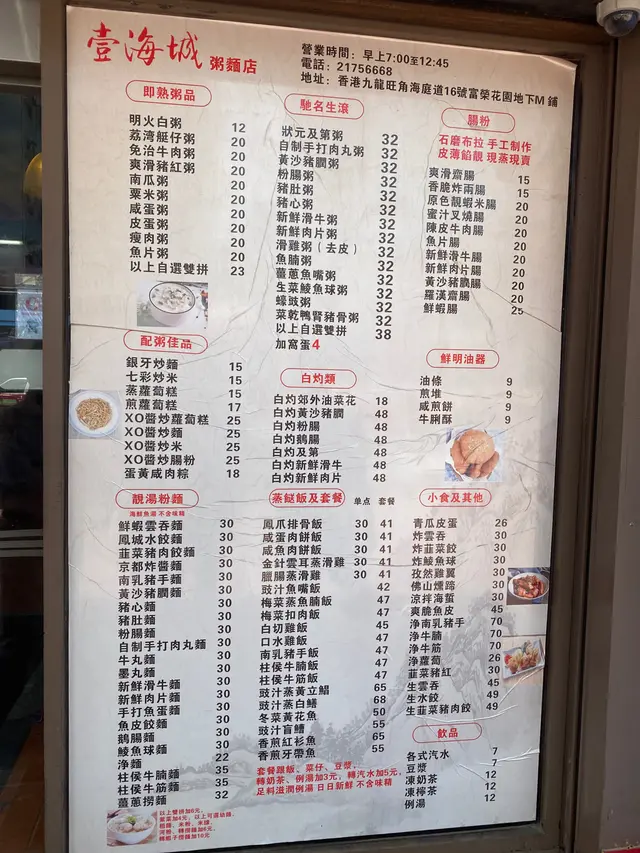 壹海城 粥麵店
營業時間：早上7:00至12:45
電話：21756668
地址：香港九龍旺角海庭道16號富榮花園地下M 鋪
即熟粥品
明火白粥 12
荔湾艇仔粥 20
免治牛肉粥 20
爽滑豬紅粥 20
南瓜粥 20
粟米粥 20
咸蛋粥 20
皮蛋粥 20
瘦肉粥 20
魚片粥 20
以上自選雙拼 23
馳名生滚
狀元及第粥 32
自制手打肉丸粥 32
黃沙豬膶粥 32
粉腸粥 32
豬肚粥 32
豬心粥 32
新鮮滑牛粥 32
新鮮肉片粥 32
滑雞粥（去皮） 32
魚腩粥 32
薑蔥魚嘴粥 32
生菜鯪魚球粥 32
蠔豉粥 32
菜乾鴨腎豬骨粥 32
以上自選雙拼 38
加窩蛋4
腸粉
石磨布拉 手工制作
皮薄餡靚 現蒸現賣
爽滑齋腸 15
香脆炸兩腸 15
原色靚蝦米腸 20
蜜汁叉燒腸 20
陳皮牛肉腸 20
魚片腸 20
新鮮滑牛腸 20
新鮮肉片腸 20
黃沙豬膶腸 20
羅漢齋腸 20
鮮蝦腸 25
配粥佳品
銀牙炒麵 15
七彩炒米 15
蒸蘿蔔糕 15
煎蘿蔔糕 17
XO醬炒蘿蔔糕 25
XO醬炒麵 25
XO醬炒米 25
XO醬炒腸粉 25
蛋黃咸肉粽 18
白灼類
白灼郊外油菜花 18
白灼黃沙豬膶 48
白灼粉腸 48
白灼鵝腸 48
白灼及第 48
白灼新鮮滑牛 48
白灼新鮮肉片 48
鮮明油器
油條 9
煎堆 9
咸煎餅 9
牛脷酥 9
靚湯粉麵
海鮮魚湯 不含味精
鮮蝦雲吞麵 30
鳳城水餃麵 30
韮菜豬肉餃麵 30
京都炸醬麵 30
南乳豬手麵 30
黃沙豬膶麵 30
豬心麵 30
豬肚麵 30
粉腸麵 30
自制手打肉丸麵 30
牛丸麵 30
墨丸麵 30
新鮮滑牛麵 30
新鮮肉片麵 30
手打魚蛋麵 30
魚皮餃麵 30
鵝腸麵 30
鯪魚球麵 30
淨麵 22
柱侯牛腩麵 35
柱侯牛筋麵 35
薑蔥撈麵 32
以上雙拼加6元，
蒸餸飯及套餐 单点 套餐
鳳爪排骨飯 30 41
咸蛋肉餅飯 30 41
咸魚肉餅飯 30 41
金針雲耳蒸滑雞 30 41
臘腸蒸滑雞 30 41
豉汁魚嘴飯 42
梅菜蒸魚腩飯 47
梅菜扣肉飯 47
白切雞飯 45
口水雞飯 47
南乳豬手飯 47
柱侯牛腩飯 47
柱侯牛筋飯 47
豉汁蒸黃立鯧 65
豉汁蒸白鱔 68
冬菜黃花魚 50
豉汁盲鰽 55
香煎紅衫魚 65
香煎牙帶魚 55
套餐跟飯、菜仔、豆漿，
轉奶茶、例湯加3元，轉汽水加5元，
足料滋潤例湯 日日新鮮 不含味精
小食及其他
青瓜皮蛋 26
炸雲吞 30
炸韮菜餃 30
炸鯪魚球 30
孜然雞翼 30
佛山燻蹄 30
涼拌海蜇 30
爽脆魚皮 45
淨南乳豬手 70
淨牛腩 70
淨牛筋 70
淨蘿蔔 26
韮菜豬紅 30
生雲吞 45
生水餃 49
生韮菜豬肉餃 49
飲品
各式汽水 7
豆漿 7
凍奶茶 12
凍檸茶 12
例湯 12